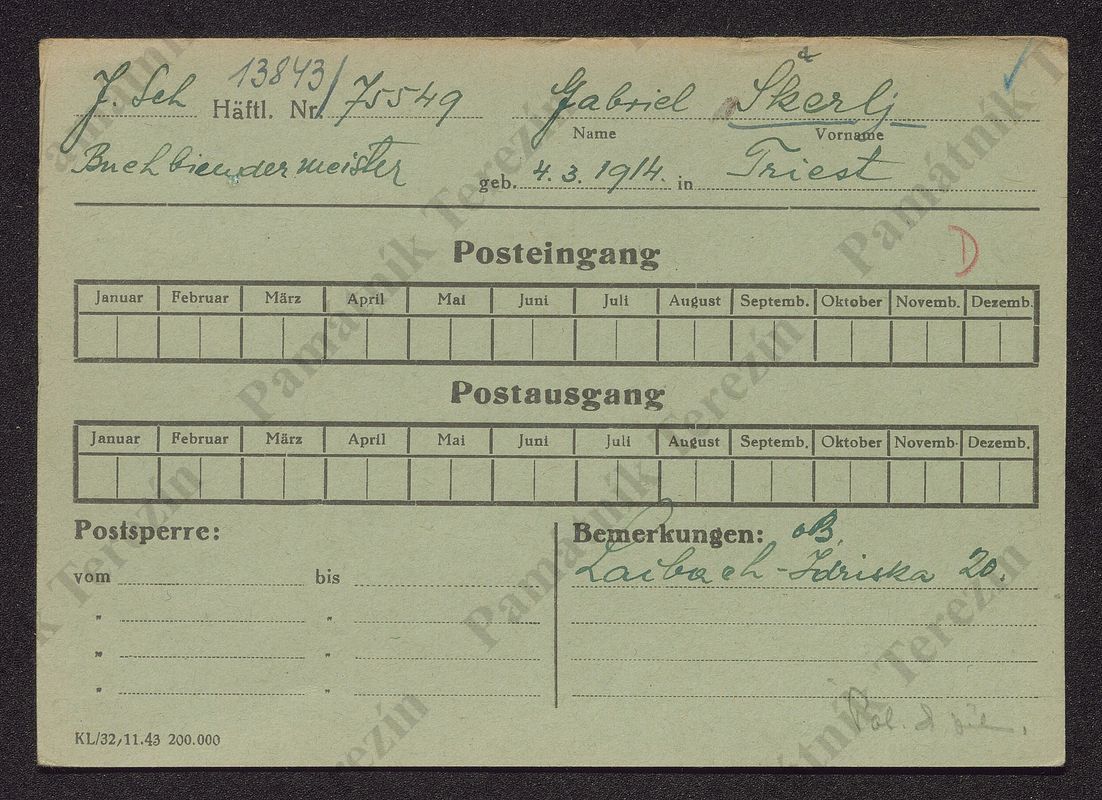 J. Sch Häftl. Nr. 13843/75549 Gabriel Škerlj
Name Vorname
Buchbiendermeister geb. 4. 3. 1914. in Triest
D
Posteingang
Januar Februar März April Mai Juni Juli August Septemb. Oktober Novemb. Dezemb.
Postausgang
Januar Februar März April Mai Juni Juli August Septemb. Oktober Novemb. Dezemb.
Postsperre: Bemerkungen: oB.
vom bis Laibach-Idriska 20.
" "
" "
" "
Pol.
KL/32,11.43 200.000
Památník Terezín